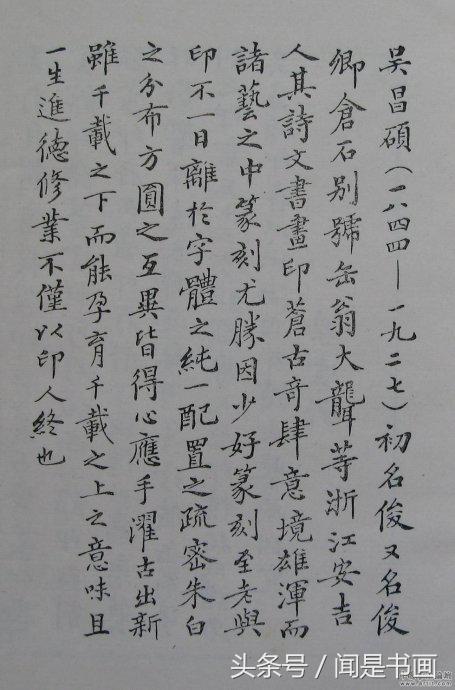 吴昌碩（一八四四—一九二七）初名俊又名俊
卿倉石别號缶翁大聾等浙江安吉
人其詩文書畫印蒼古奇肆意境雄渾而
諸藝之中篆刻尤勝因少好篆刻至老與
印不一日離於字體之純一配置之疏密朱白
之分布方圓之互異皆得心應手濯古出新
雖千載之下而能孕育千載之上之意味且
一生進德修業不僅以印人終也
头条号 / 闻是书画